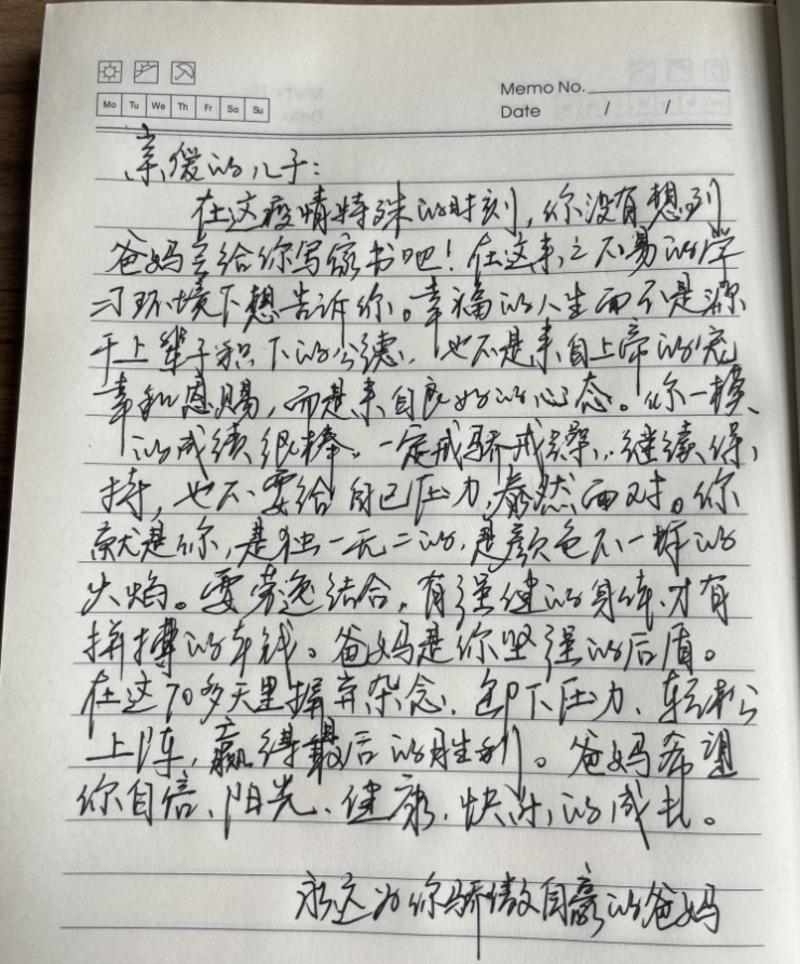 Mo Tu We Th Fr Sa Su
Memo No.
Date / /
亲爱的儿子：
在这疫情特殊的时刻，你没有想到
爸妈会给你写家书吧！在这来之不易的学
习环境下想告诉你。幸福的人生而不是源
于上辈子积下的公德，也不是来自上帝的宠
幸和恩赐，而是来自良好的心态。你一模
的成绩很棒。一定戒骄戒躁，继续保
持，也不要给自己压力，泰然面对。你
就是你，是独一无二的，是颜色不一样的
火焰。要劳逸结合，有强健的身体，才有
拼搏的本钱。爸妈是你坚强的后盾。
在这70多天里摒弃杂念，卸下压力、轻松
上阵，赢得最后的胜利。爸妈希望
你自信、阳光、健康、快乐的成长。
永远为你骄傲自豪的爸妈